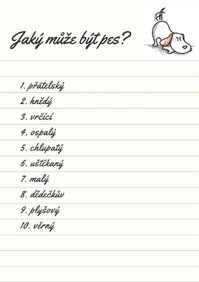 Jaký může být pes?
1. přátelský
2. hnědý
3. vrčící
4. ospalý
5. chlupatý
6. uštěkaný
7. malý
8. dědečkův
9. plyšový
10. věrný